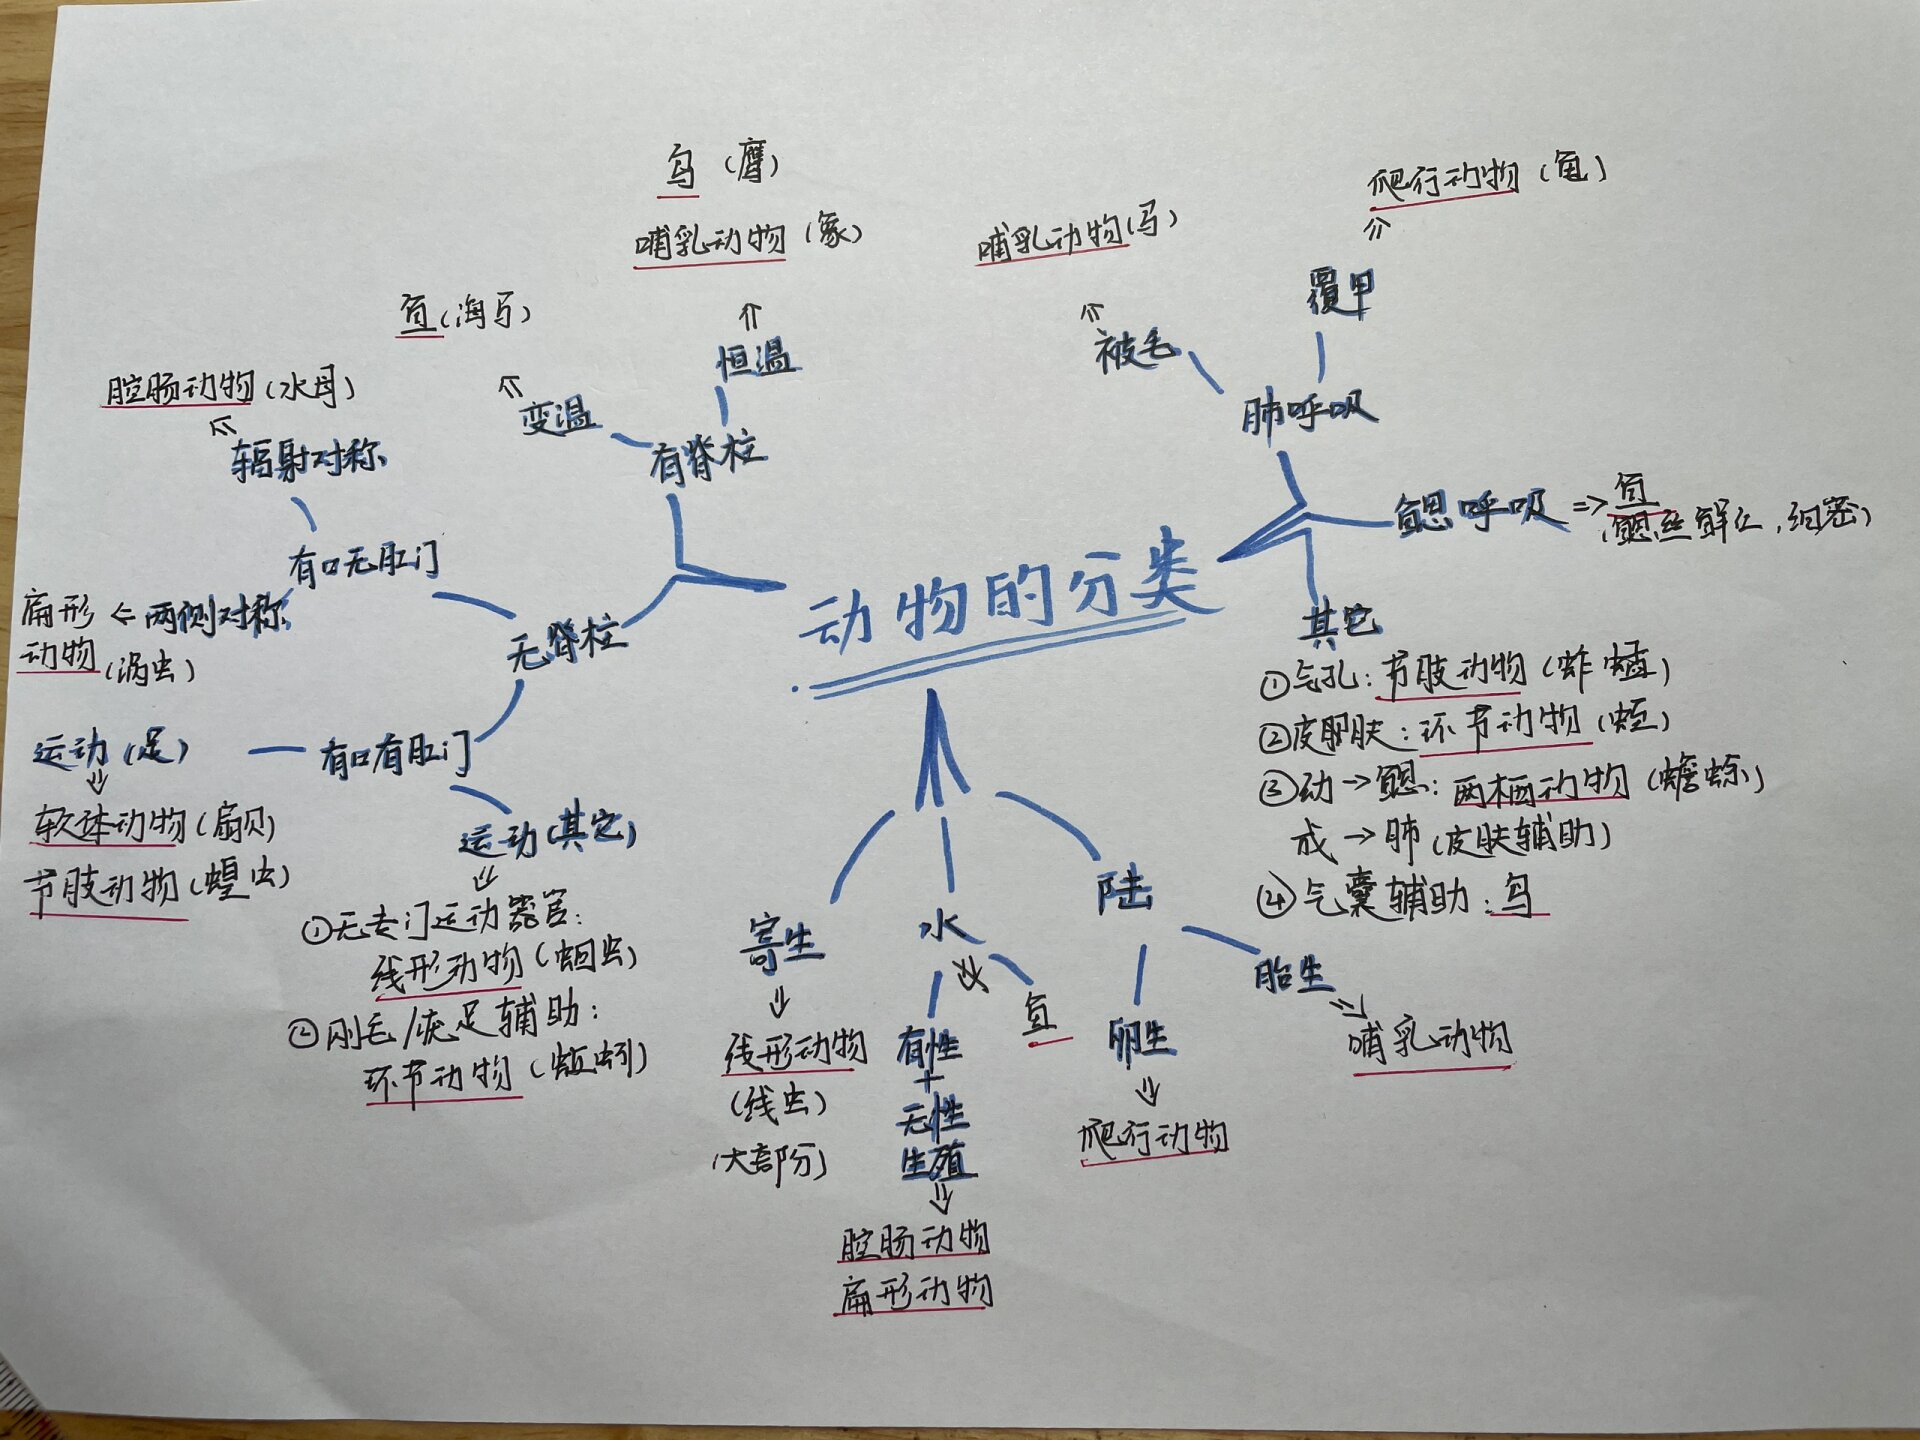 动物的分类
有脊柱
恒温
鸟(鹰)
哺乳动物(象)
变温
鱼(海马)
无脊柱
有口无肛门
辐射对称
腔肠动物(水母)
两侧对称
扁形
动物(涡虫)
有口有肛门
运动(足)
软体动物(扇贝)
节肢动物(蝗虫)
运动(其它)
①无专门运动器官:
线形动物(蛔虫)
②刚毛/疣足辅助:
环节动物(蚯蚓)
寄生
线形动物
(线虫)
(大部分)
水
有性
+
无性
生殖
腔肠动物
扁形动物
鱼
陆
卵生
爬行动物
胎生
哺乳动物
肺呼吸
被毛
哺乳动物(马)
覆甲
爬行动物(龟)
鳃呼吸
鱼
(鳃丝鲜红,细密)
其它
①气孔:节肢动物(蚱蜢)
②皮肤:环节动物(蛭)
③幼→鳃:两栖动物(蟾蜍)
成→肺(皮肤辅助)
④气囊辅助:鸟